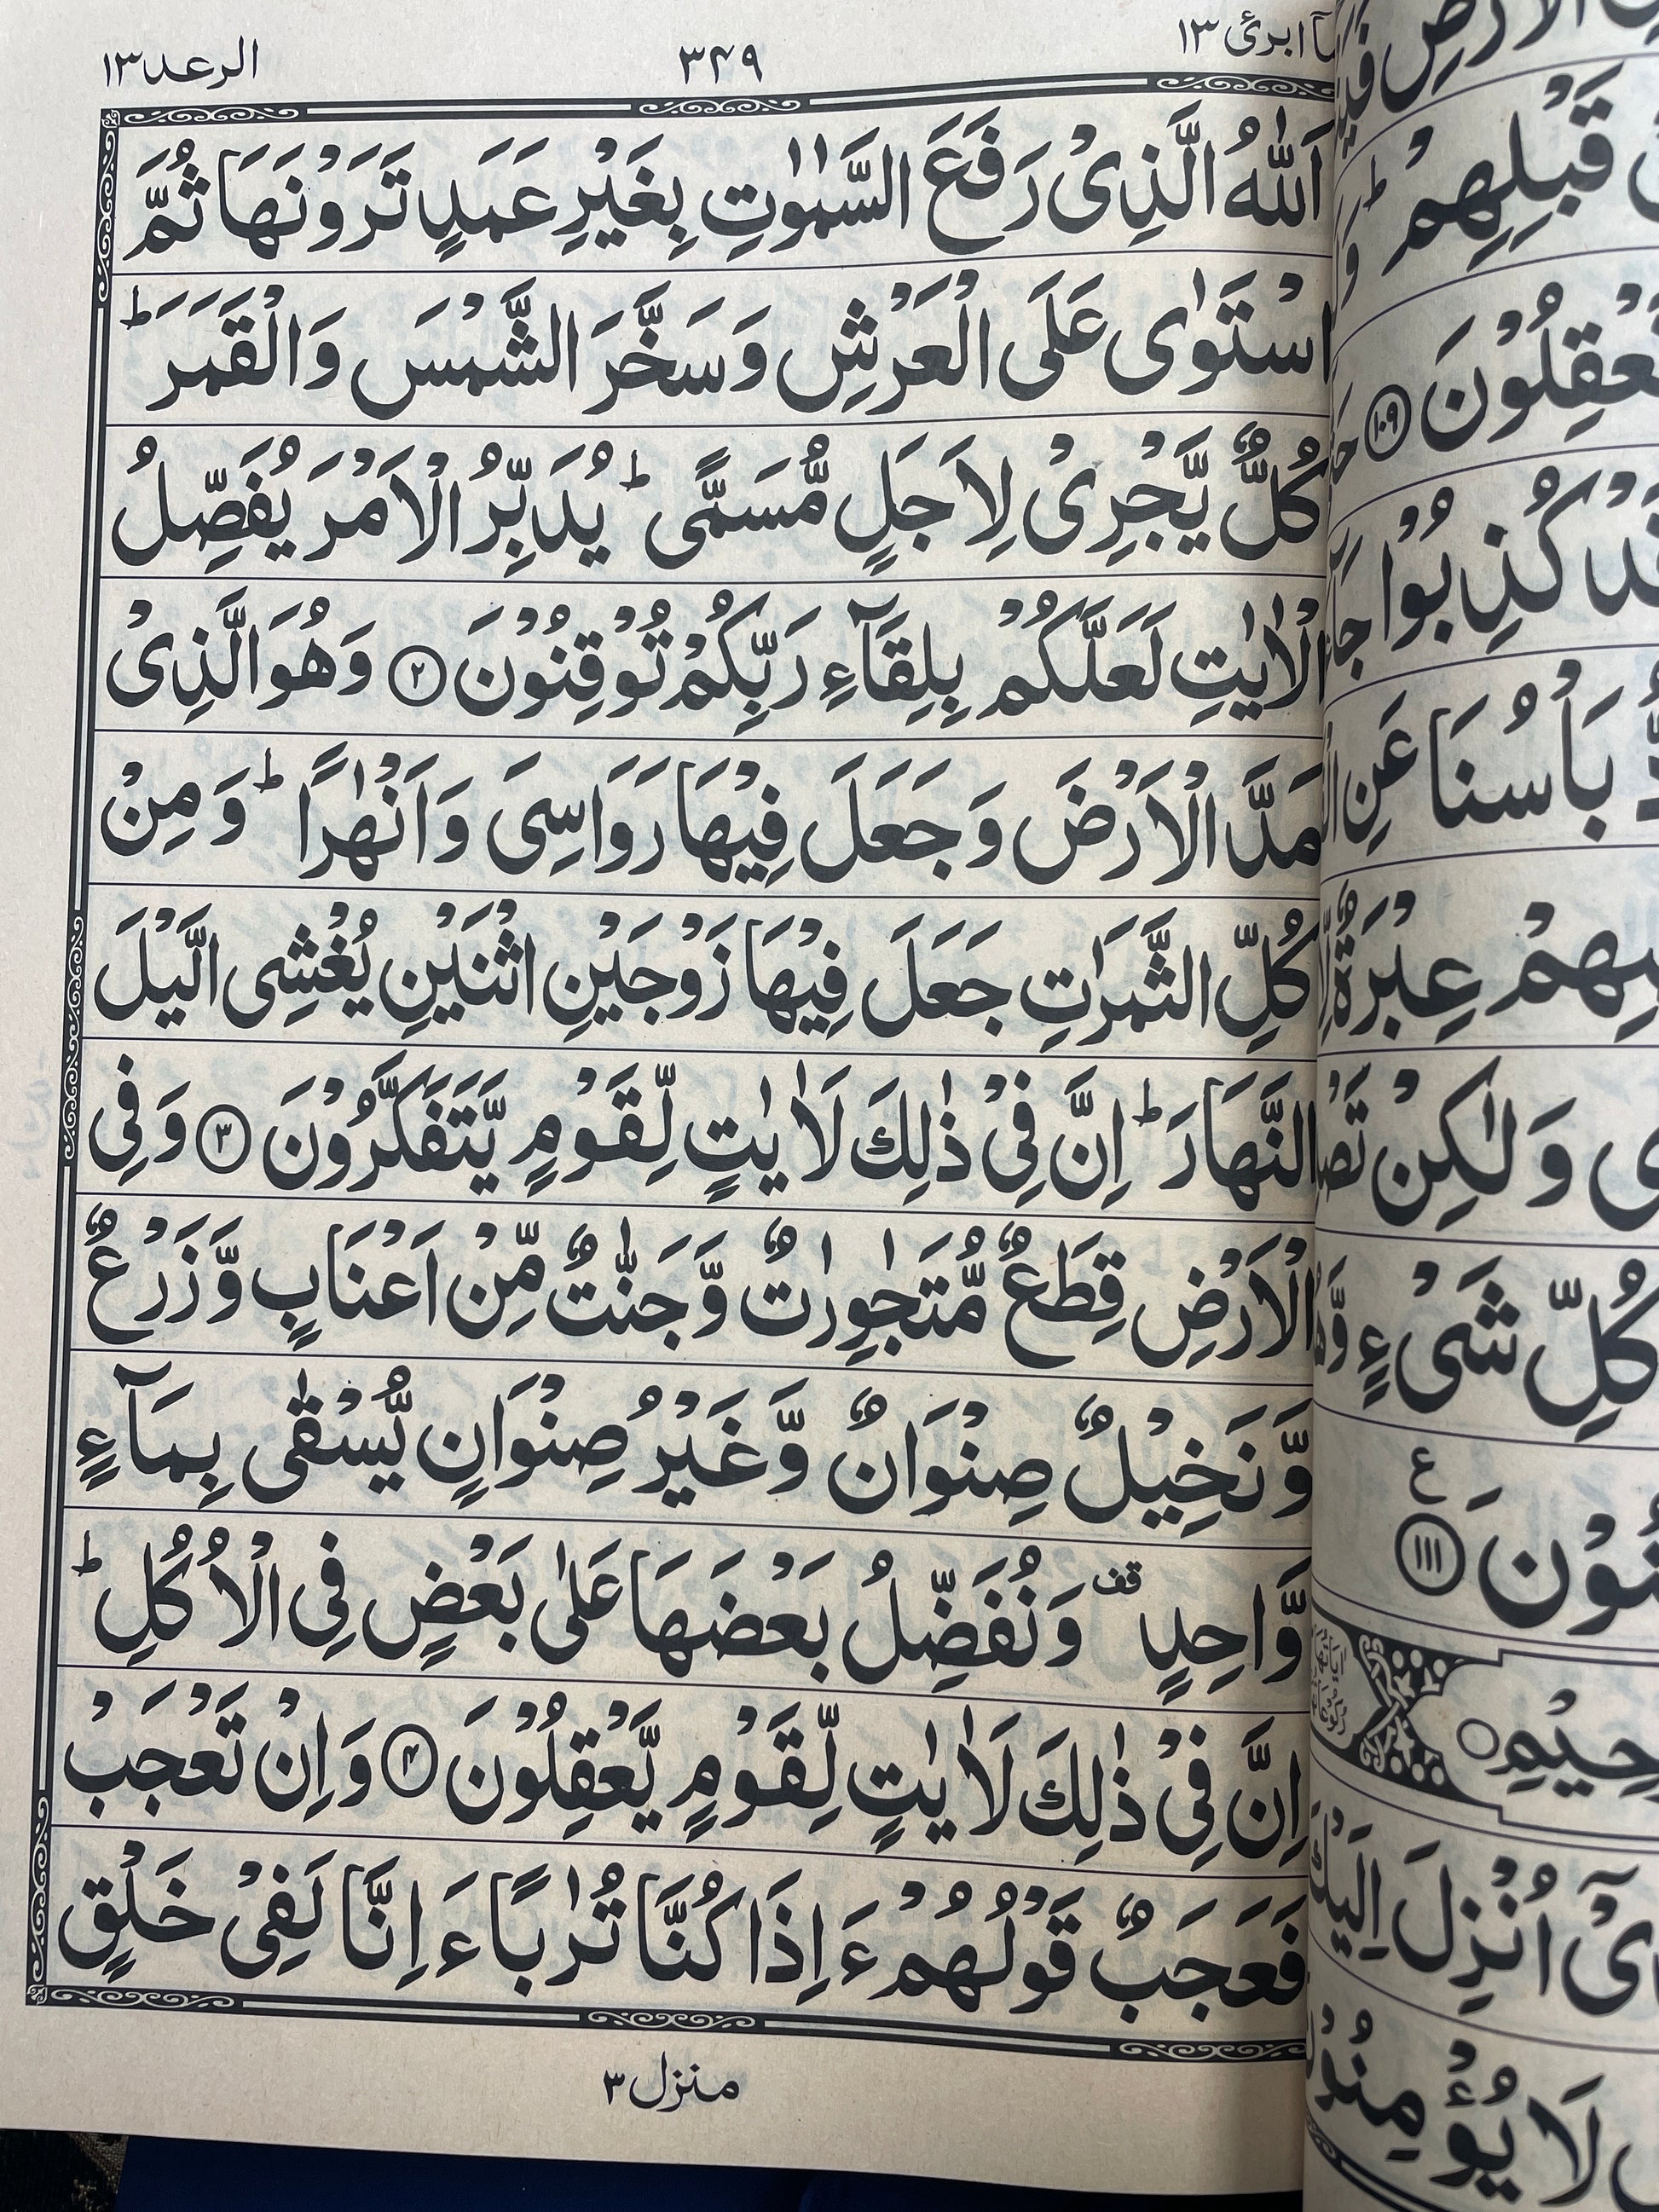 مآ ابرئ ١٣
٣٤٩
الرعد ١٣
اَللّٰهُ الَّذِىْ رَفَعَ السَّمٰوٰتِ بِغَيْرِ عَمَدٍ تَرَوْنَهَا ثُمَّ
اسْتَوٰى عَلَى الْعَرْشِ وَسَخَّرَ الشَّمْسَ وَالْقَمَرَ ؕ
كُلٌّ يَّجْرِىْ لِاَجَلٍ مُّسَمًّى ؕ يُدَبِّرُ الْاَمْرَ يُفَصِّلُ
الْاٰيٰتِ لَعَلَّكُمْ بِلِقَآءِ رَبِّكُمْ تُوْقِنُوْنَ ﴿٢﴾ وَهُوَ الَّذِىْ
مَدَّ الْاَرْضَ وَجَعَلَ فِيْهَا رَوَاسِىَ وَاَنْهٰرًا ؕ وَمِنْ
كُلِّ الثَّمَرٰتِ جَعَلَ فِيْهَا زَوْجَيْنِ اثْنَيْنِ يُغْشِى الَّيْلَ
النَّهَارَ ؕ اِنَّ فِىْ ذٰلِكَ لَاٰيٰتٍ لِّقَوْمٍ يَّتَفَكَّرُوْنَ ﴿٣﴾ وَفِى
الْاَرْضِ قِطَعٌ مُّتَجٰوِرٰتٌ وَّجَنّٰتٌ مِّنْ اَعْنَابٍ وَّزَرْعٌ
وَّنَخِيْلٌ صِنْوَانٌ وَّغَيْرُ صِنْوَانٍ يُّسْقٰى بِمَآءٍ
وَّاحِدٍ قف وَنُفَضِّلُ بَعْضَهَا عَلٰى بَعْضٍ فِى الْاُكُلِ ؕ
اِنَّ فِىْ ذٰلِكَ لَاٰيٰتٍ لِّقَوْمٍ يَّعْقِلُوْنَ ﴿٤﴾ وَاِنْ تَعْجَبْ
فَعَجَبٌ قَوْلُهُمْ ءَاِذَا كُنَّا تُرٰبًا ءَاِنَّا لَفِىْ خَلْقٍ
منزل ٣
قَبْلِهِمْ ؕ
﴿١٠٩﴾
كُذِبُوْا
بَاْسُنَا عَنِ
عِبْرَةٌ
وَلٰكِنْ
كُلِّ شَىْءٍ
ع
﴿١١١﴾
اُنْزِلَ
لَا